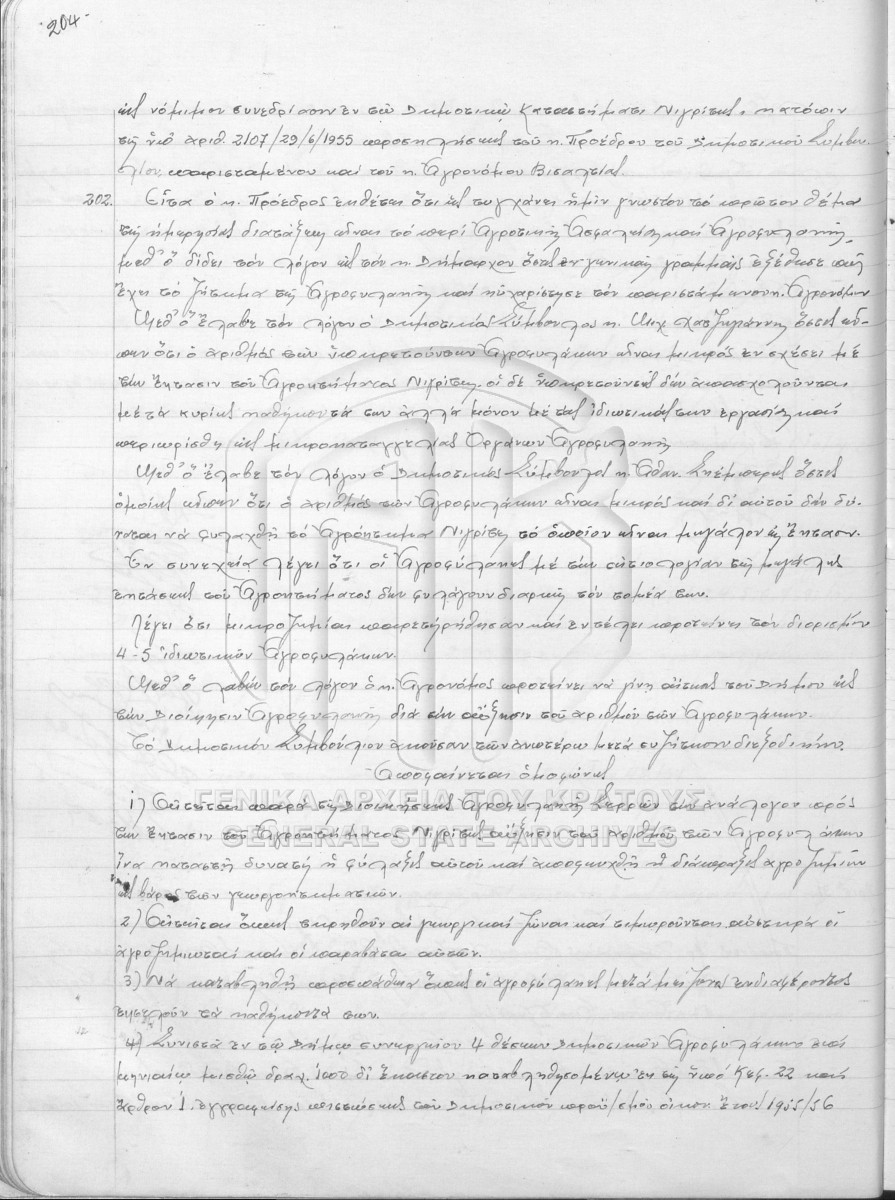 204
εἰς νόμιμον συνεδρίασιν ἐν τῷ Δημοτικῷ Καταστήματι Νιγρίτης, κατόπιν
τῆς ὑπ' ἀριθ. 2107/29/6/1955 προσκλήσεως τοῦ κ. Προέδρου τοῦ Δημοτικοῦ Συμβου-
λίου, παρισταμένου καί τοῦ κ. Ἀγρονόμου Βισαλτίας.
202. Εἶτα ὁ κ. Πρόεδρος ἐκθέτει ὅτι ὡς τυγχάνει ἡμῖν γνωστόν τό πρῶτον θέμα
τῆς ἡμερησίας διατάξεως εἶναι τό περί Ἀγροτικῆς Ἀσφαλείας καί Ἀγροφυλακῆς,
μεθ' ὅ δίδει τόν λόγον εἰς τόν κ. Δήμαρχον ὅστις ἐν γενικαῖς γραμμαῖς ἐξέθεσε πῶς
ἔχει τό ζήτημα τῆς Ἀγροφυλακῆς καί ηὐχαρίστησε τόν παριστάμενον κ. Ἀγρονόμον
Μεθ' ὅ ἔλαβε τόν λόγον ὁ Δημοτικός Σύμβουλος κ. Μιχ. Χατζηγιάννης ὅστις εἶ-
πεν ὅτι ὁ ἀριθμός τῶν ὑπηρετούντων Ἀγροφυλάκων εἶναι μικρός ἐν σχέσει μέ
τήν ἔκτασιν τοῦ Ἀγροκτήματος Νιγρίτης, οἱ δέ ὑπηρετοῦντες δέν ἀπασχολοῦνται
μέ τά κυρίως καθήκοντά των ἀλλά μόνον μέ τάς ἰδιωτικάς των ἐργασίας καί
περιωρίσθη εἰς μικροκαταγγελίας Ὀργάνων Ἀγροφυλακῆς
Μεθ' ὅ ἔλαβε τόν λόγον ὁ Δημοτικός Σύμβουλος κ. Ἀθαν. ὅστις
ὁμοίως εἶπεν ὅτι ὁ ἀριθμός τῶν Ἀγροφυλάκων εἶναι μικρός καί δι' αὐτοῦ δέν δύ-
ναται νά φυλαχθῇ τό Ἀγρόκτημα Νιγρίτης τό ὁποῖον εἶναι μεγάλον εἰς ἔκτασιν.
Ἐν συνεχείᾳ λέγει ὅτι οἱ Ἀγροφύλακες μέ τήν αἰτιολογίαν τῆς μεγάλης
ἐκτάσεως τοῦ Ἀγροκτήματος δέν φυλάγουν διαρκῶς τόν τομέα των.
Λέγει ὅτι μικροζημίαι παρετηρήθησαν καί ἐν τέλει προτείνει τόν διορισμόν
4-5 ἰδιωτικῶν Ἀγροφυλάκων.
Μεθ' ὅ λαβών τόν λόγον ὁ κ. Ἀγρονόμος προτείνει νά γίνῃ αἴτησις τοῦ Δήμου εἰς
τήν Διοίκησιν Ἀγροφυλακῆς διά τήν αὔξησιν τοῦ ἀριθμοῦ τῶν Ἀγροφυλάκων.
Τό Δημοτικόν Συμβούλιον ἀκοῦσαν τῶν ἀνωτέρω μετά συζήτησιν διεξοδικήν.
Ἀποφαίνεται ὁμοφώνως
1) Αἰτεῖται παρά τῆς Διοικήσεως Ἀγροφυλακῆς Σερρῶν τήν ἀνάλογον πρός
τήν ἔκτασιν τοῦ Ἀγροκτήματος Νιγρίτης αὔξησιν τοῦ ἀριθμοῦ τῶν Ἀγροφυλάκων
ἵνα καταστῇ δυνατή ἡ φύλαξις αὐτοῦ καί ἀποφευχθῇ ἡ διάπραξις ἀγροζημιῶν
εἰς βάρος τῶν γεωργοκτηματιῶν.
2) Αἰτεῖται ὅπως τηρηθοῦν αἱ γεωργικαί ζῶναι καί τιμωροῦνται αὐστηρά οἱ
ἀγροζημιωταί καί οἱ παραβάται αὐτῶν.
3) Νά καταβληθῇ προσπάθεια ὅπως οἱ ἀγροφύλακες μετά μείζονος ἐνδιαφέροντος
ἐκτελοῦν τά καθήκοντά των.
4) Συνιστᾶ ἐν τῷ Δήμῳ 4 θέσεων Δημοτικῶν Ἀγροφυλάκων ἐπί
μηνιαίῳ μισθῷ δραχ. δι' ἕκαστον καταβληθησομένῳ ἐκ τῆς ὑπό Κεφ. 22 καί
ἄρθρον 1. ἐγγραφείσης πιστώσεως τοῦ Δημοτικοῦ προϋ/σμοῦ οἰκον. ἔτους 1955/56
ΓΕΝΙΚΑ ΑΡΧΕΙΑ ΤΟΥ ΚΡΑΤΟΥΣ
GENERAL STATE ARCHIVES